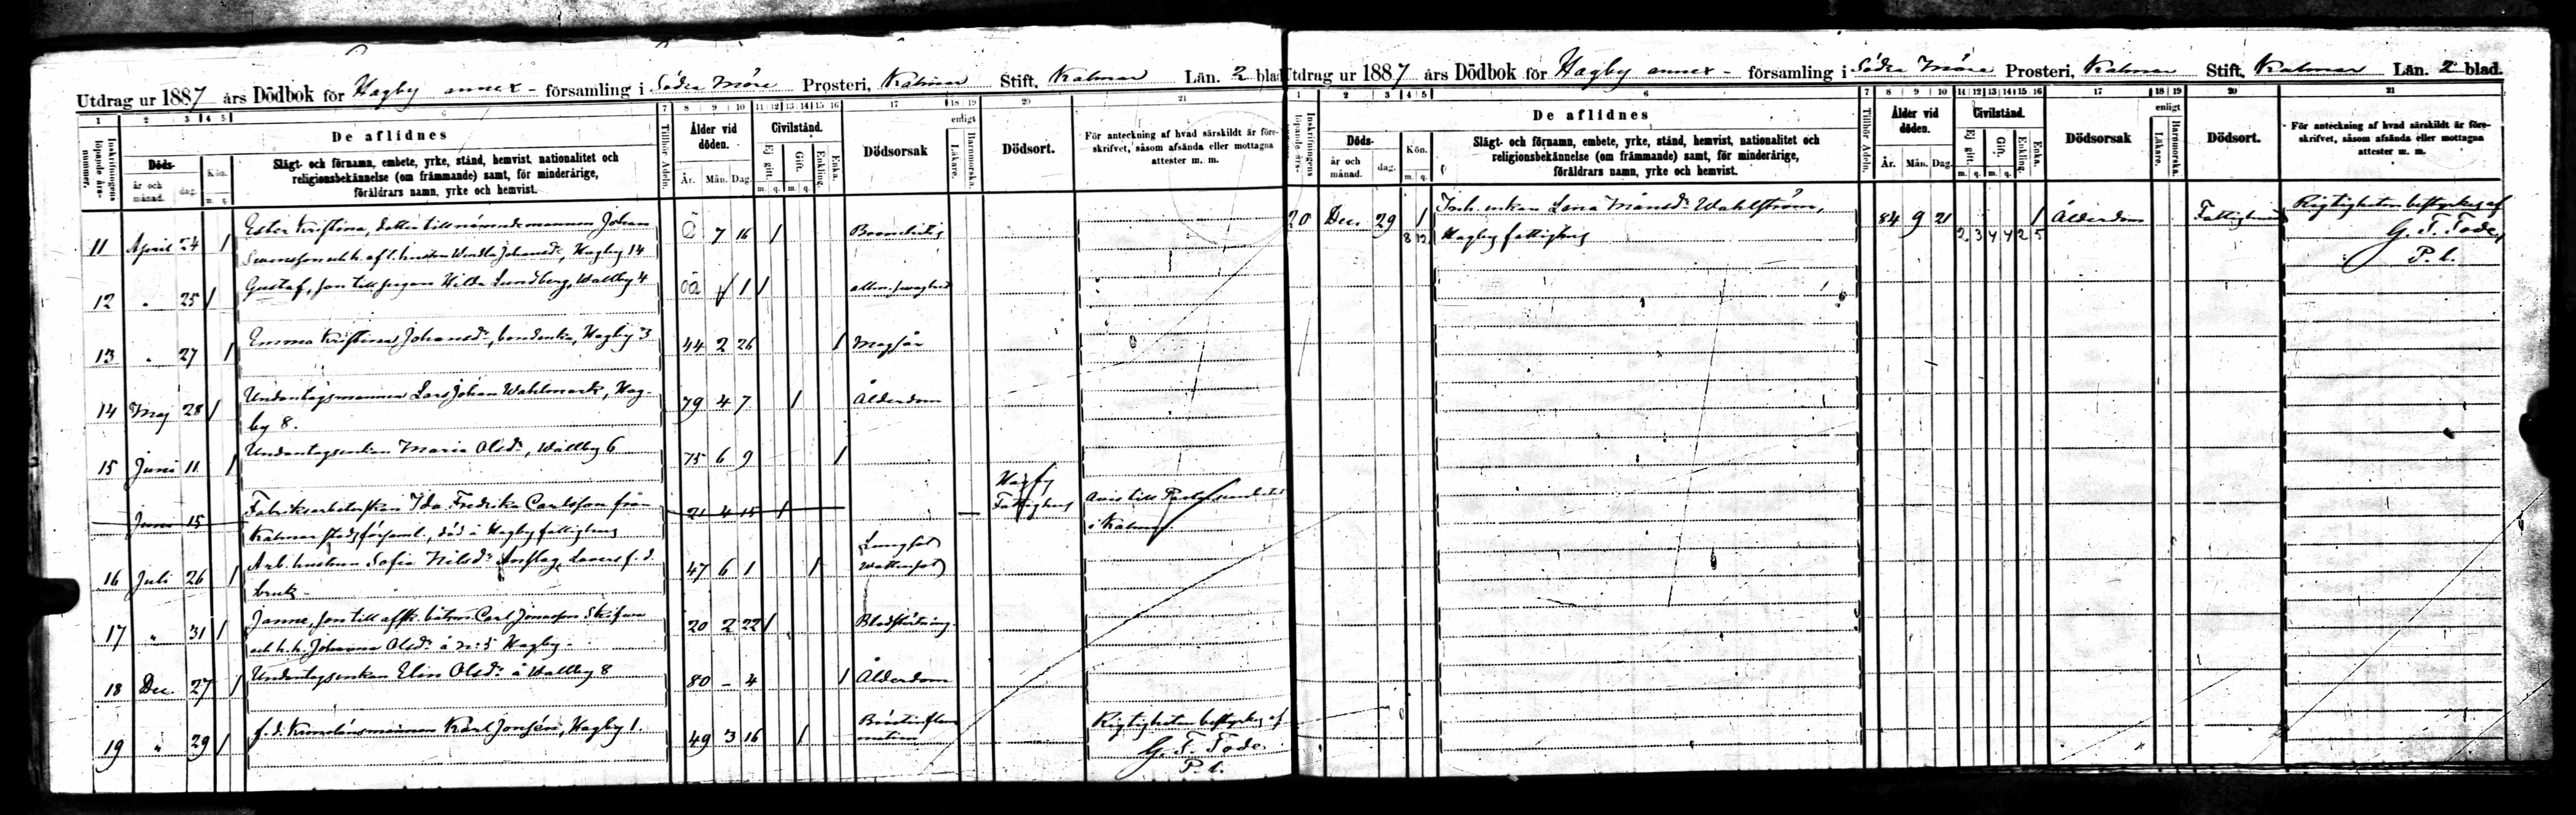 Utdrag ur 1887 års Dödbok för Hagby annex - församling i Södra Möre Prosteri, Kalmar Stift, Kalmar Län. 2 blad
1 2 3 4 5 6 7 8 9 10 11 12 13 14 15 16 17 18 19 20 21
Inskrifningens löpande års-nummer.
Döds-
år och månad.
dag.
Kön.
m. q.
De aflidnes
Slägt- och förnamn, embete, yrke, stånd, hemvist, nationalitet och
religionsbekännelse (om främmande) samt, för minderårige,
föräldrars namn, yrke och hemvist.
Tillhör Adeln.
Ålder vid döden.
År. Mån. Dag.
Civilstånd.
Ej gift. Gift. Enkling. Enka.
m. q. m. q.
Dödsorsak
enligt
Läkare. Barnmorska.
Dödsort.
För anteckning af hvad särskildt är före-
skrifvet, såsom afsända eller mottagna
attester m. m.
11 April 24 1 Ester Kristina, dotter till nämndemannen Johan 7 16 1
Svensson och h. afl. hustru Johansdr, Hagby 14
12 " 25 1 Gustaf, son till pigan Hilda Lundberg, Wallby 4 1 1 allm. svaghet
13 " 27 1 Emma Kristina Johansdr, bondenka, Hagby 3 44 2 26 1 Magsår
14 Maj 28 1 Undantagsmannen Lars Johan Wahlmark, Hag- 79 4 7 1 Ålderdom
by 8.
15 Juni 11 1 Undantagsenkan Maria Olsdr, Wallby 6 75 6 9 1
Juni 15 Fabriksarbeterskan Ida Fredrika Carlsson från 21 4 15 1 Hagby Fattighus
Kalmar stadsförsaml., död å Hagby fattighus
Avis till Pastorsembetet
i Kalmar
16 Juli 26 1 Arb. hustrun Sofia Nilsdr f. d. 47 6 1 1 Lungsot
Wattensot
bruk -
17 " 31 1 Janne, son till afsk. båtsm. Carl Jonasson 20 2 22 1 Blodstörtning
och h. h. Johanna Olsdr å No 5 Hagby -
18 Dec. 27 1 Undantagsenkan Elin Olsdr å Wallby 8 80 - 4 1 Ålderdom
19 " 29 1 f. d. Kronolänsmannen Karl Jonsén, Hagby 1. 49 3 16 1 Bröstinflam-
mation
Rigtigheten bestyrkes af
G. T. Tode
P. l.
Utdrag ur 1887 års Dödbok för Hagby annex - församling i Södra Möre Prosteri, Kalmar Stift, Kalmar Län. 2 blad.
1 2 3 4 5 6 7 8 9 10 11 12 13 14 15 16 17 18 19 20 21
Inskrifningens löpande års-
Döds-
år och månad.
dag.
Kön.
m. q.
De aflidnes
Slägt- och förnamn, embete, yrke, stånd, hemvist, nationalitet och
religionsbekännelse (om främmande) samt, för minderårige,
föräldrars namn, yrke och hemvist.
Tillhör Adeln.
Ålder vid döden.
År. Mån. Dag.
Civilstånd.
Ej gift. Gift. Enkling. Enka.
m. q. m. q.
Dödsorsak
enligt
Läkare. Barnmorska.
Dödsort.
För anteckning af hvad särskildt är före-
skrifvet, såsom afsända eller mottagna
attester m. m.
20 Dec. 29 1 Inh. enkan Lena Månsdr Wahlström, 84 9 21 1 Ålderdom Fattighuset
8 12 Hagby fattighus 2 3 4 4 2 5
Rigtigheten bestyrkes af
G. T. Tode
P. l.